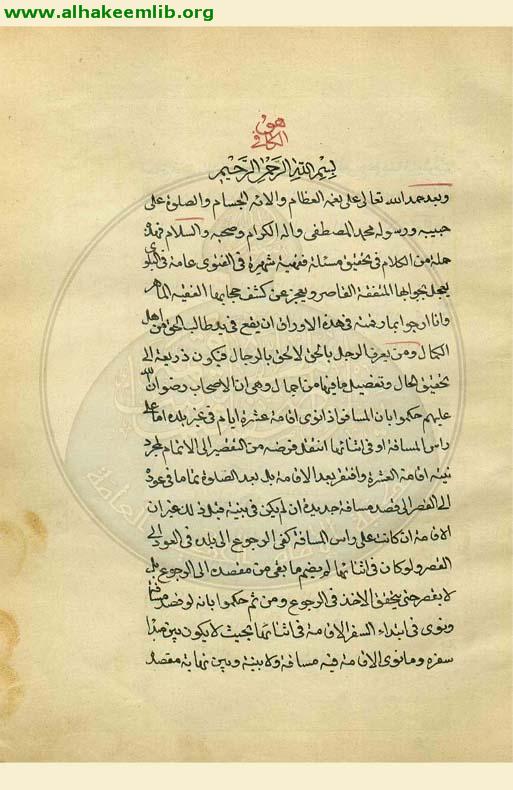 www.alhakeemlib.org
هو
الكافي
بسم الله الرحمن الرحيم
وبعد حمد الله تعالى على نعمه العظام والائه الجسام والصلوة على
حبيبه ورسوله محمد المصطفى واله الكرام وصحبه والسلام فهذه
جملة من الكلام في تحقيق مسئلة فقهية شهيرة في الفتوى عامة في البلوى
يعجل بجوابها المتفقه القاصر ويعجز عن كشف حجابها الفقيه الماهر
وانا ارجو بما رقمته في هذه الاوراق ان يقع في يد طالب الحق من اهل
الكمال ومن يعرف الرجل بالحق لا الحق بالرجال فيكون ذريعة الى
تحقيق الحال وتفصيل ما فيها من اجمال وهي ان الاصحاب رضوان الله
عليهم حكموا بان المسافر اذا نوى اقامة عشرة ايام في غير بلده اما على
راس المسافة او في اثنائها انتقل فرضه من التقصير الى الاتمام بمجرد
نيته اقامة العشرة وافتقر بعد الاقامة بل بعد الصلوة تماما في عوده
الى القصر الى قصد مسافة جديدة ان لم يكن في نيته قبل ذلك غير ان
الاقامة ان كانت على راس المسافة كفى الرجوع الى بلده في العود الى
القصر ولو كان في اثنائها لم يضم ما بقى من مقصده الى الرجوع بل
لا يقصر حتى يتحقق الاخذ في الرجوع ومن ثم حكموا بانه لو قصد مسافة
ونوى في ابتداء السفر الاقامة في اثنائها بحيث لا يكون بين مبدا
سفره وما نوى الاقامة فيه مسافة ولا بينه وبين نهاية مقصد